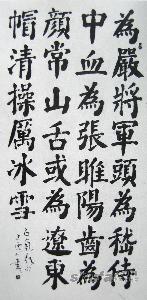 為嚴將軍頭為嵇侍
中血為張睢陽齒為
顏常山舌或為遼東
帽清操厲冰雪